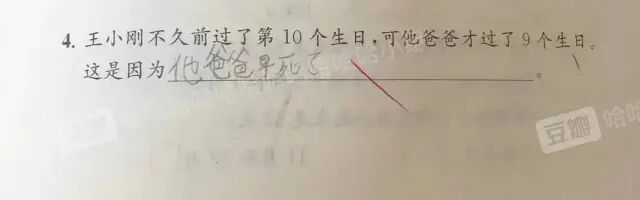 4. 王小刚不久前过了第10个生日,可他爸爸才过了9个生日。
这是因为他爸爸早死了。
豆瓣